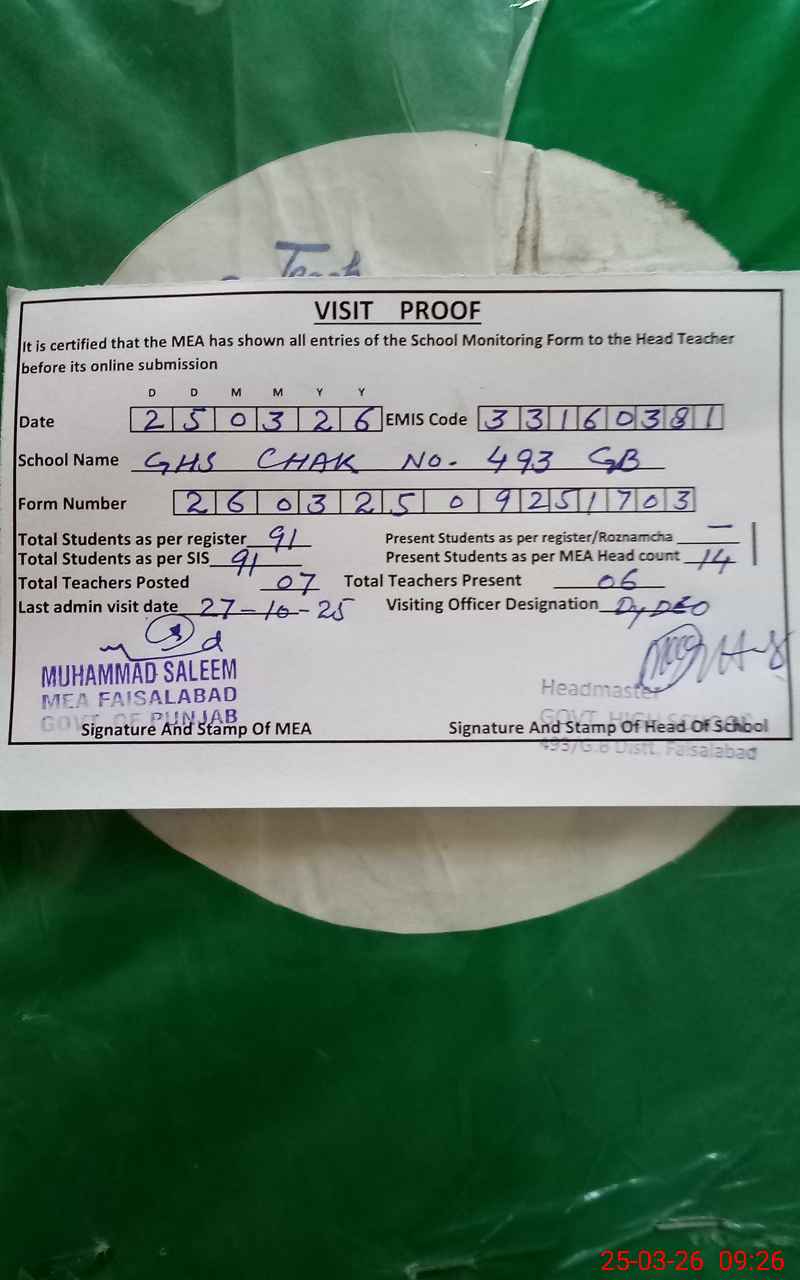 Teach
VISIT PROOF
It is certified that the MEA has shown all entries of the School Monitoring Form to the Head Teacher
before its online submission
D D M M Y Y
Date 2 5 0 3 2 6 EMIS Code 3 3 1 6 0 3 8 1
School Name GHS CHAK NO. 493 GB
Form Number 2 6 0 3 2 5 0 9 2 5 1 7 0 3
Total Students as per register 91 Present Students as per register/Roznamcha —
Total Students as per SIS 91 Present Students as per MEA Head count 14
Total Teachers Posted 07 Total Teachers Present 06
Last admin visit date 27-10-25 Visiting Officer Designation Dy DEO
MUHAMMAD SALEEM
MEA FAISALABAD
GOVT. OF PUNJAB
Headmaster
GOVT. HIGH SCHOOL
493/G.B Distt. Faisalabad
Signature And Stamp Of MEA Signature And Stamp Of Head Of School
25-03-26 09:26